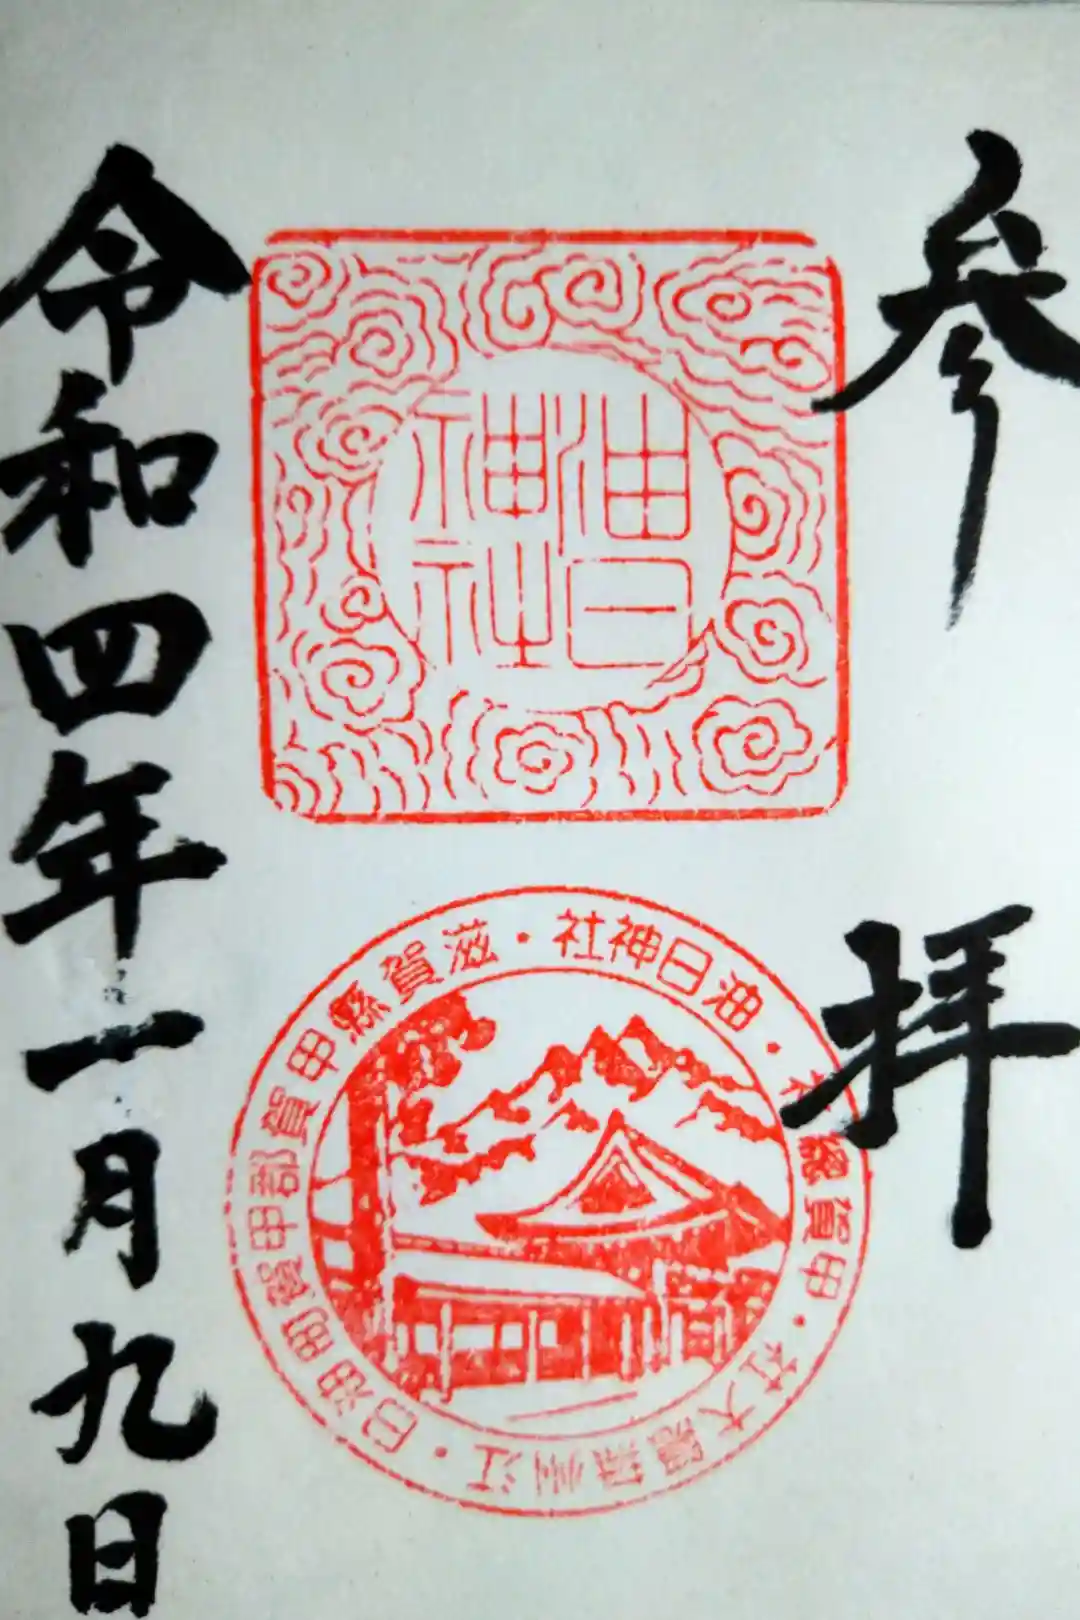 参拝
油日
神社
油日神社・滋賀縣甲賀郡甲賀町油日・江州
大社・甲賀総社・
令和四年一月九日